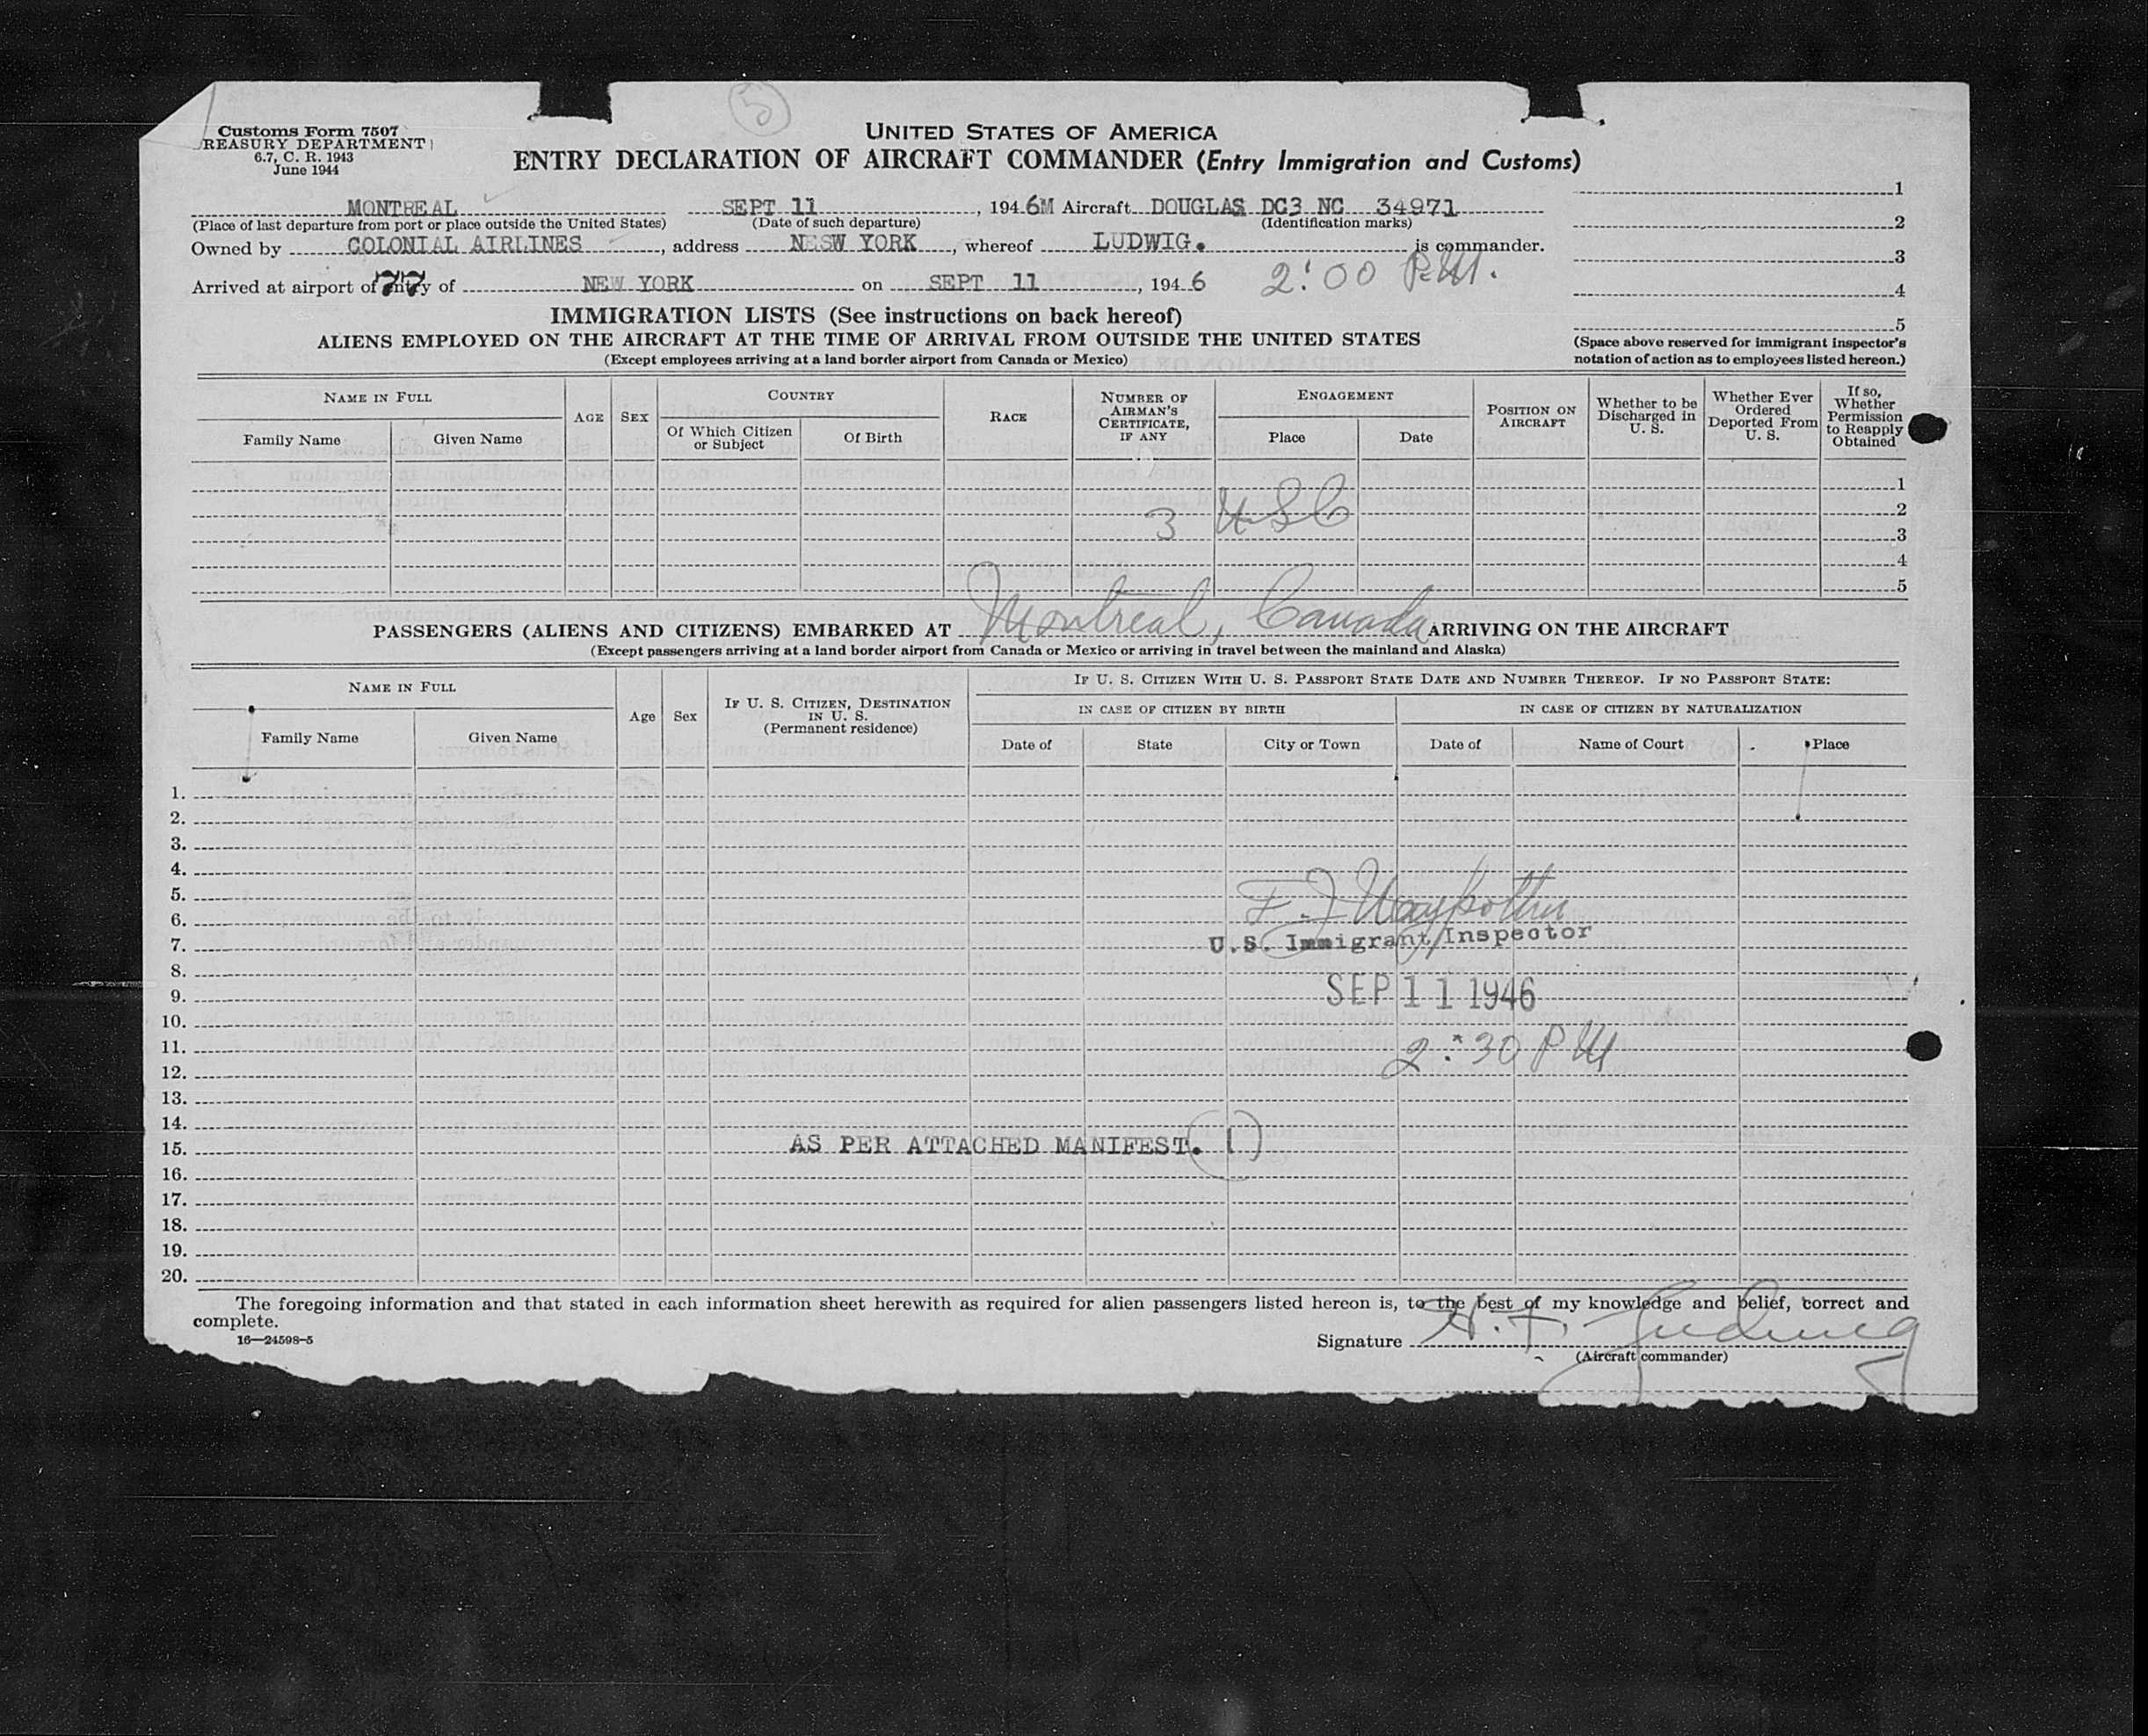 5
Customs Form 7507
REASURY DEPARTMENT
6.7, C. R. 1943
June 1944
UNITED STATES OF AMERICA
ENTRY DECLARATION OF AIRCRAFT COMMANDER (Entry Immigration and Customs)
MONTREAL SEPT 11, 194 6M Aircraft DOUGLAS DC3 NC 34971
(Place of last departure from port or place outside the United States) (Date of such departure) (Identification marks)
Owned by COLONIAL AIRLINES, address NESW YORK, whereof LUDWIG. is commander.
Arrived at airport of entry of NEW YORK on SEPT 11, 194 6 2:00 P.M.
77
1
2
3
4
5
(Space above reserved for immigrant inspector's
notation of action as to employees listed hereon.)
IMMIGRATION LISTS (See instructions on back hereof)
ALIENS EMPLOYED ON THE AIRCRAFT AT THE TIME OF ARRIVAL FROM OUTSIDE THE UNITED STATES
(Except employees arriving at a land border airport from Canada or Mexico)
NAME IN FULL
Family Name Given Name
AGE SEX
COUNTRY
Of Which Citizen or Subject Of Birth
RACE
NUMBER OF AIRMAN'S CERTIFICATE, IF ANY
ENGAGEMENT
Place Date
POSITION ON AIRCRAFT
Whether to be Discharged in U. S.
Whether Ever Ordered Deported From U. S.
If so, Whether Permission to Reapply Obtained
1
2
3 USC
3
4
5
PASSENGERS (ALIENS AND CITIZENS) EMBARKED AT Montreal, Canada ARRIVING ON THE AIRCRAFT
(Except passengers arriving at a land border airport from Canada or Mexico or arriving in travel between the mainland and Alaska)
NAME IN FULL
Family Name Given Name
Age Sex
IF U. S. CITIZEN, DESTINATION IN U. S. (Permanent residence)
IF U. S. CITIZEN WITH U. S. PASSPORT STATE DATE AND NUMBER THEREOF. IF NO PASSPORT STATE:
IN CASE OF CITIZEN BY BIRTH IN CASE OF CITIZEN BY NATURALIZATION
Date of State City or Town Date of Name of Court Place
1.
2.
3.
4.
5. F. J.
6.
7. U.S. Immigrant Inspector
8.
9. SEP 11 1946
10.
11. 2:30 PM
12.
13.
14.
15. AS PER ATTACHED MANIFEST. (1)
16.
17.
18.
19.
20.
The foregoing information and that stated in each information sheet herewith as required for alien passengers listed hereon is, to the best of my knowledge and belief, correct and
complete.
16—24598-5
Signature H. F. Ludwig
(Aircraft commander)